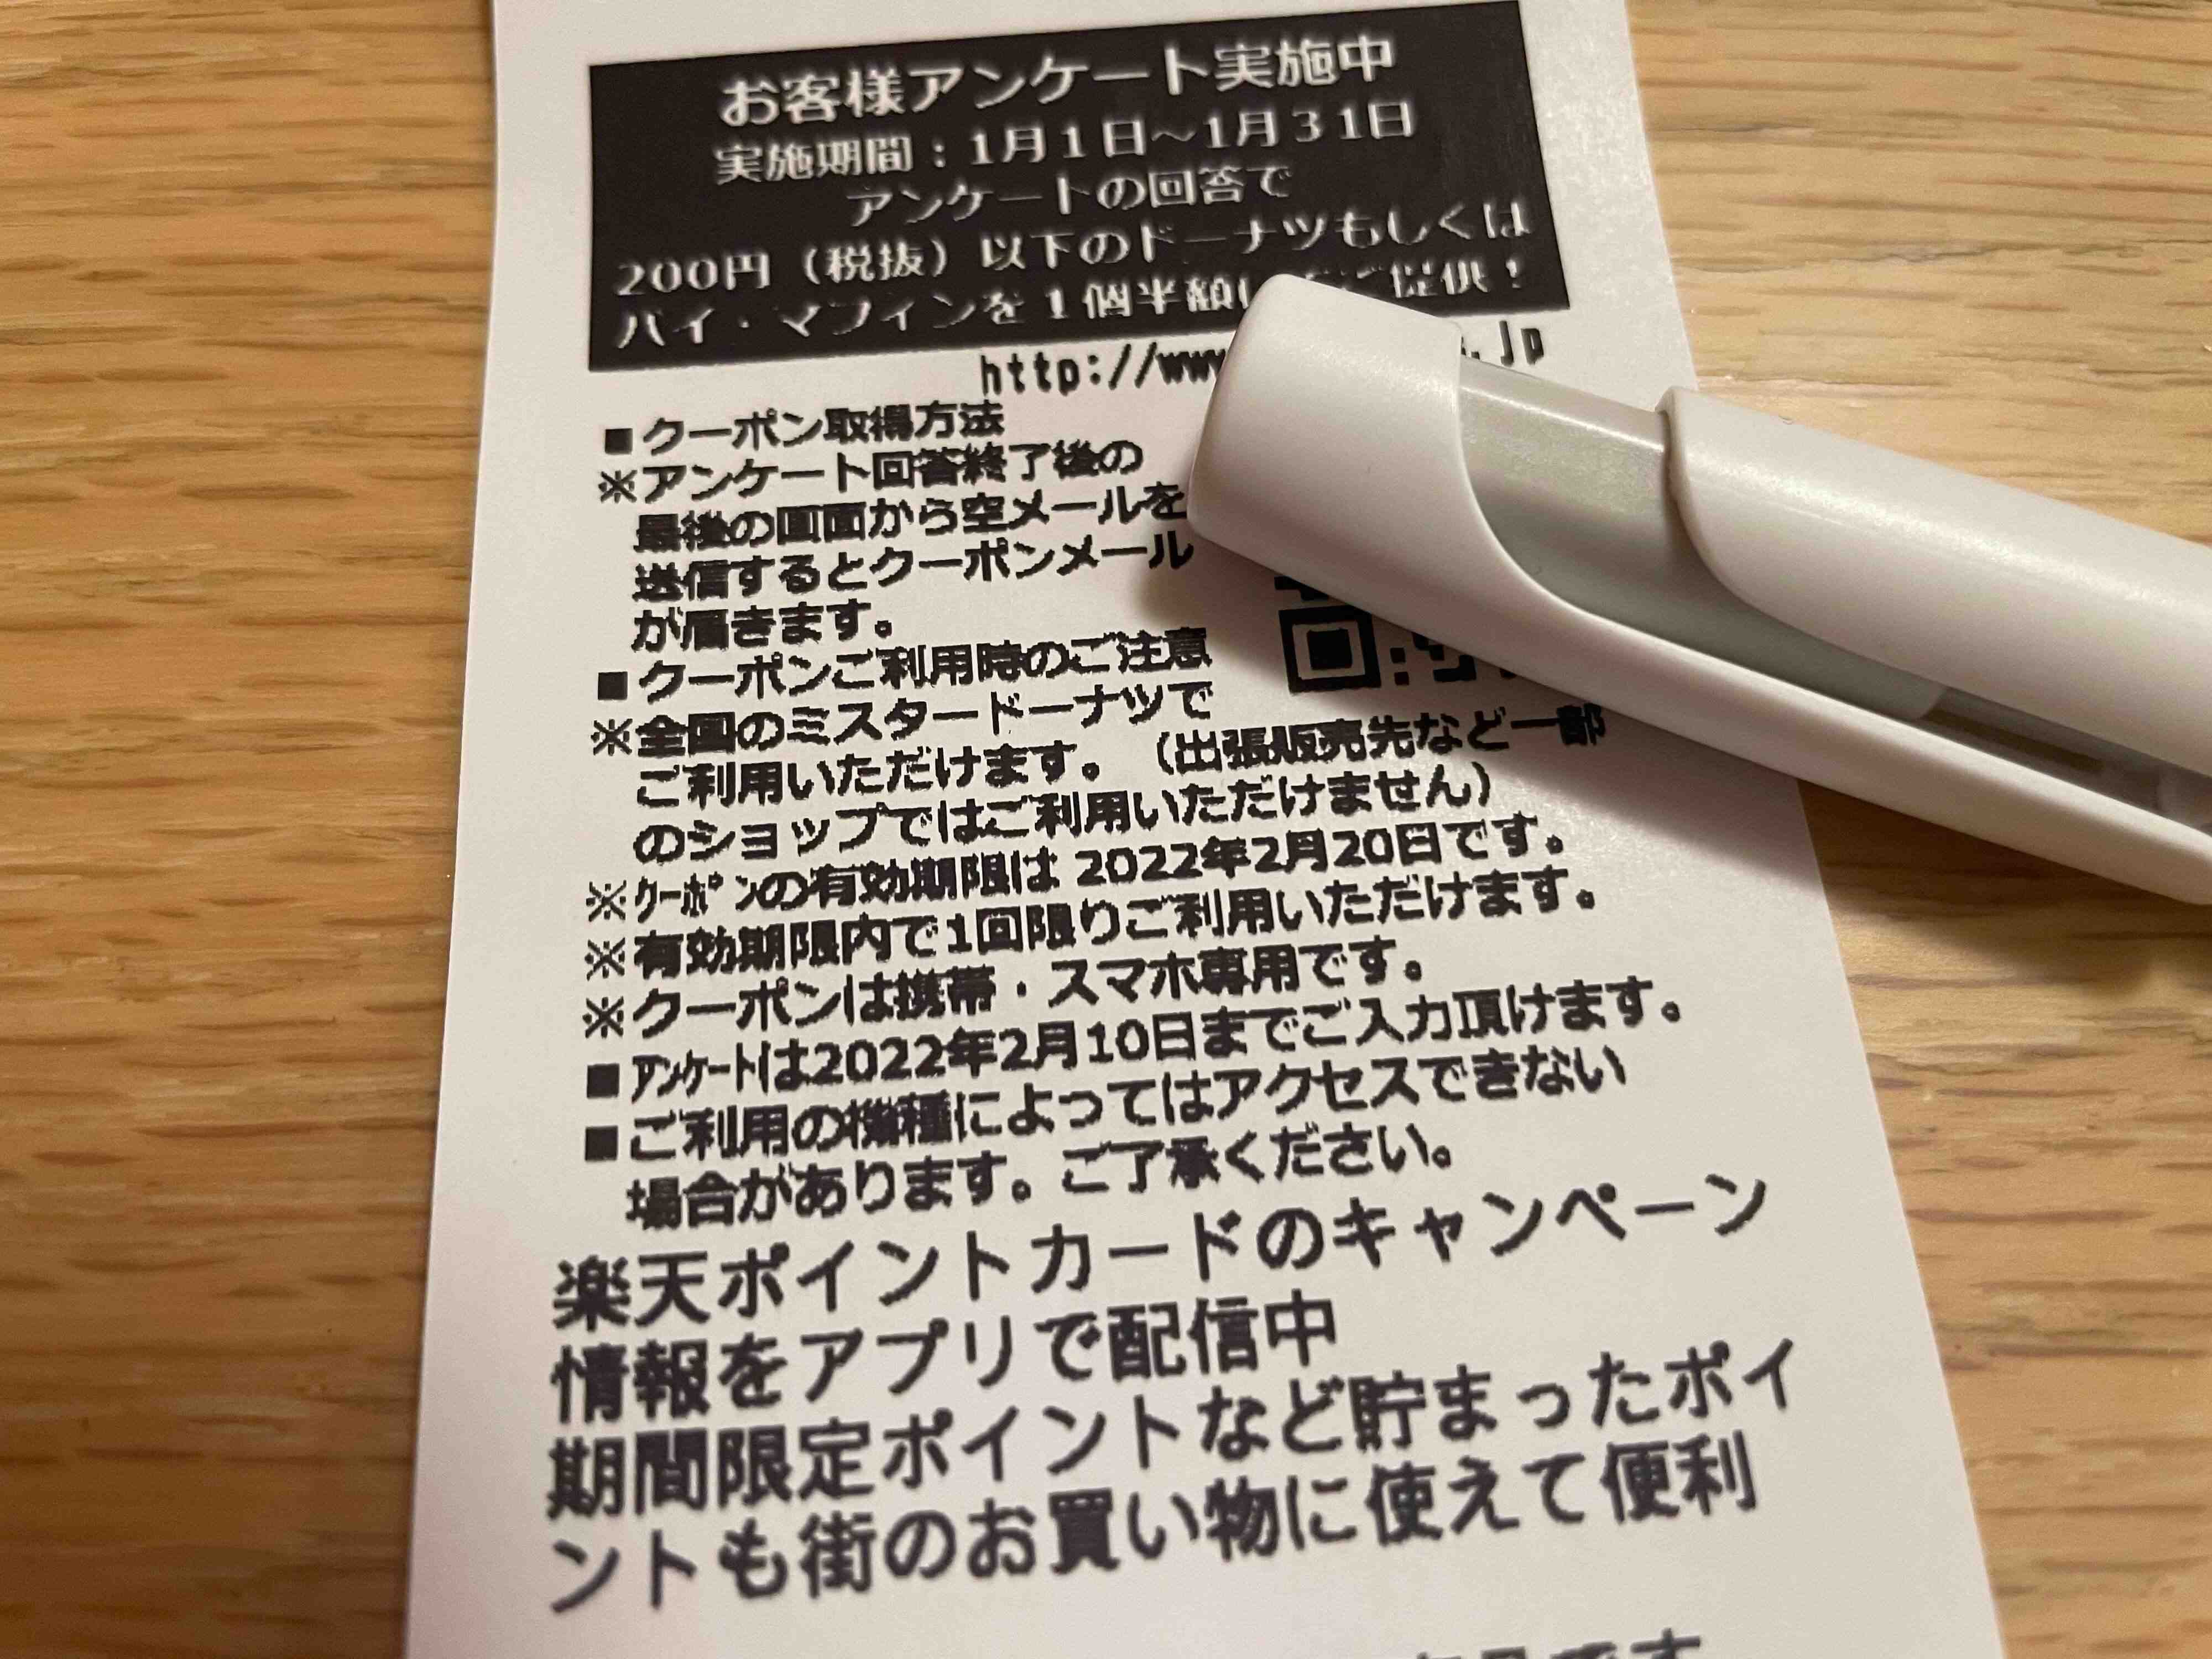 お客様アンケート実施中
実施期間：1月1日～1月31日
アンケートの回答で
200円（税抜）以下のドーナツもしくは
パイ・マフィンを1個半額 ご提供！
http://www .jp
■クーポン取得方法
※アンケート回答終了後の
最後の画面から空メールを
送信するとクーポンメール
が届きます。
■クーポンご利用時のご注意
※全国のミスタードーナツで
ご利用いただけます。（出張販売先など一部
のショップではご利用いただけません）
※ｸｰﾎﾟﾝの有効期限は 2022年2月20日です。
※有効期限内で1回限りご利用いただけます。
※クーポンは携帯・スマホ専用です。
■ｱﾝｹｰﾄは2022年2月10日までご入力頂けます。
■ご利用の機種によってはアクセスできない
場合があります。ご了承ください。
楽天ポイントカードのキャンペーン
情報をアプリで配信中
期間限定ポイントなど貯まったポイ
ントも街のお買い物に使えて便利
です